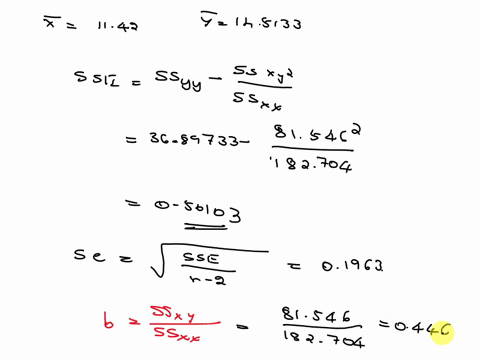 x̄ = 11.42   ȳ = 14.8133
SSE = SSyy - SSxy² / SSxx
= 36.89733 - 81.546² / 182.704
= 0.50103
Se = √(SSE / n-2) = 0.1963
b = SSxy / SSxx = 81.546 / 182.704 = 0.446